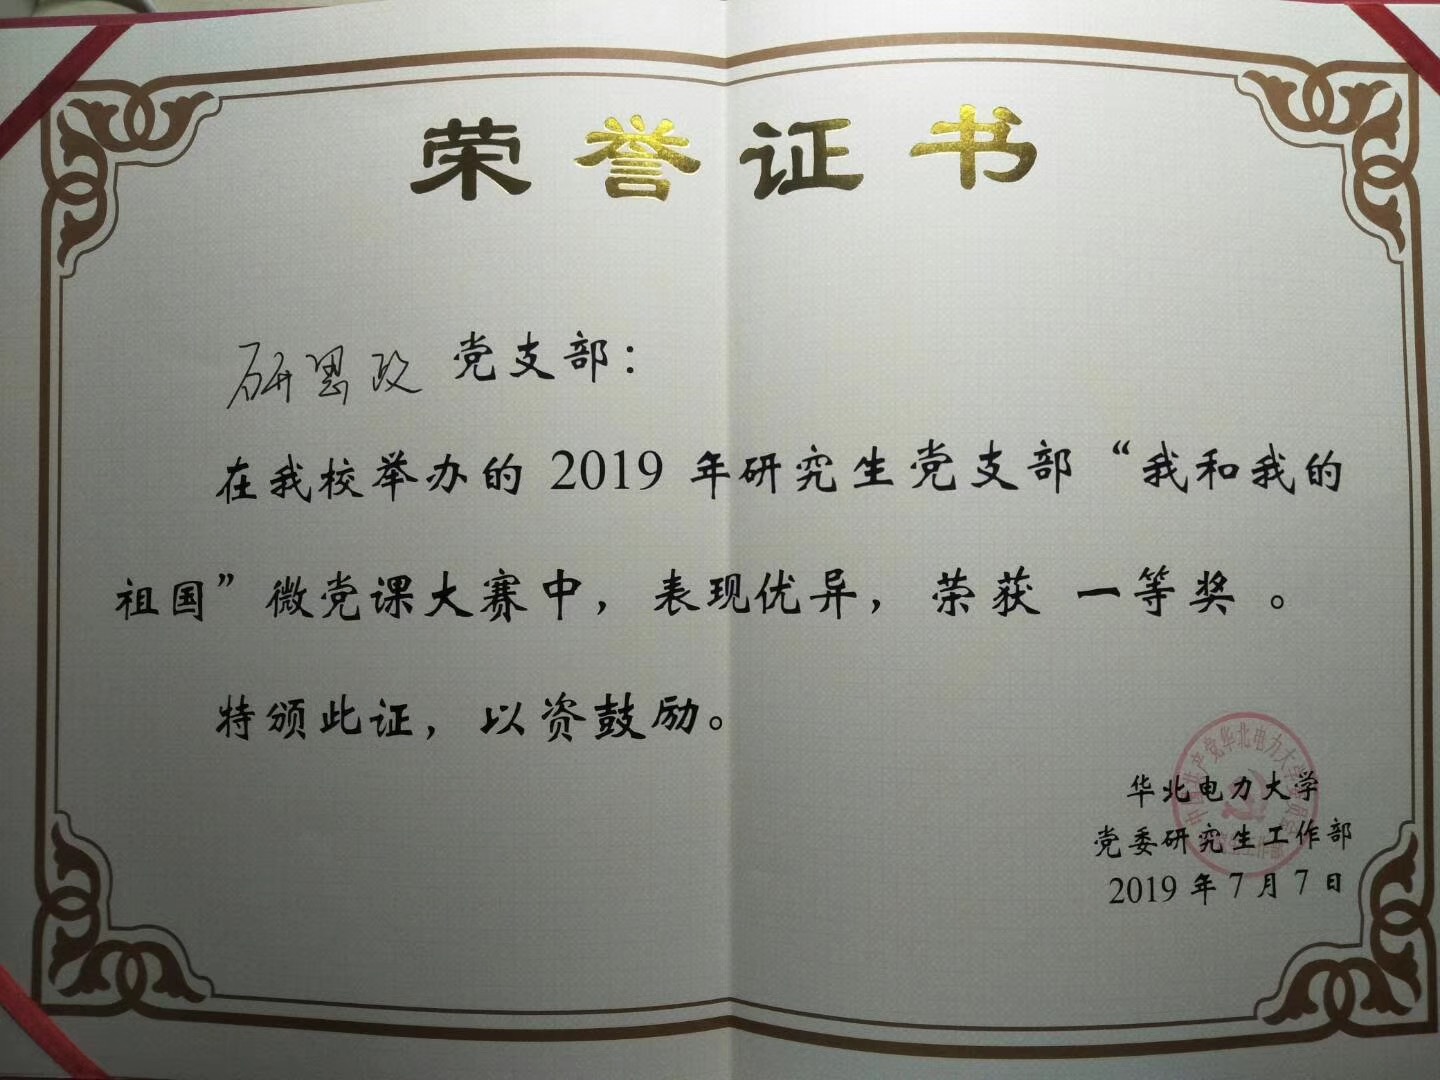 荣誉证书
研思政 党支部：
在我校举办的 2019 年研究生党支部“我和我的
祖国”微党课大赛中，表现优异，荣获 一等奖 。
特颁此证，以资鼓励。
中国共产党华北电力大学委员会
华北电力大学
党委研究生工作部
2019 年 7 月 7 日